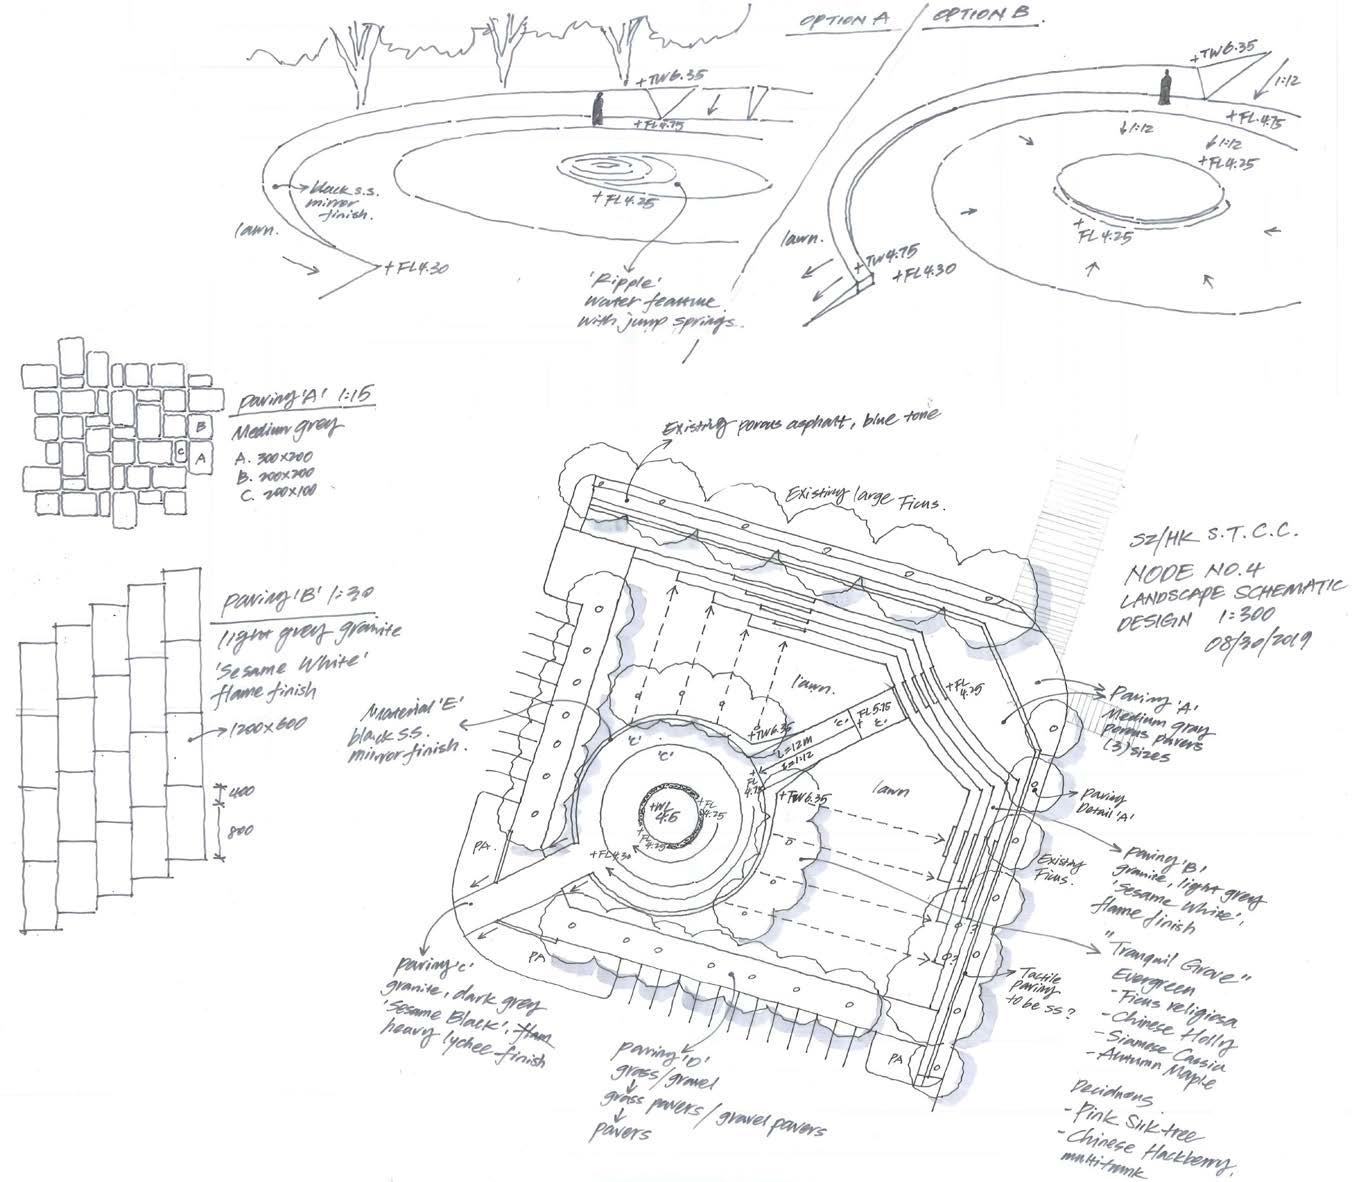 OPTION A
OPTION B.
+TW6.35
+FL4.75
+FL4.25
black s.s.
mirror
finish.
lawn.
+FL4.30
'Ripple'
water feature
with jump springs.
+TW6.35
1:12
+FL.4.75
↓1:12
↓1:12
+FL4.25
+
FL4.25
lawn.
+TW4.75
+FL4.30
paving 'A' 1:15
Medium grey
A. 300x200
B. 200x200
C. 200x100
B
C
A
paving 'B' 1:30
light grey granite
'Sesame White'
flame finish
1200x600
400
800
Existing porous asphalt, blue tone
Existing large Ficus.
SZ/HK S.T.C.C.
NODE NO.4
LANDSCAPE SCHEMATIC
DESIGN 1:300
08/30/2019
Material 'E'
black SS.
mirror finish.
lawn.
+FL
4.25
FL5.75
+
'C'
'C'
+TW6.35
L=12m
1:12
+
FL
4.75
+TW6.35
lawn
'C'
'C'
+WL
4.5
+FL
4.25
+FL
4.25
+FL4.30
PA.
PA
PA
Paving 'A'
Medium gray
porous pavers
(3) sizes
paving
Detail 'A'
Existing
Ficus.
paving 'B'
granite, light grey
'Sesame White',
flame finish
"Tranquil Grove"
Evergreen
- Ficus religiosa
- Chinese Holly
- Siamese Cassia
- Autumn Maple
Deciduous
- Pink Silk tree
- Chinese Hackberry,
multitrunk
Tactile
paving
to be ss?
paving 'C'
granite, dark grey
'Sesame Black', flam
heavy lychee finish
paving 'D'
grass/gravel
grass pavers / gravel pavers
pavers